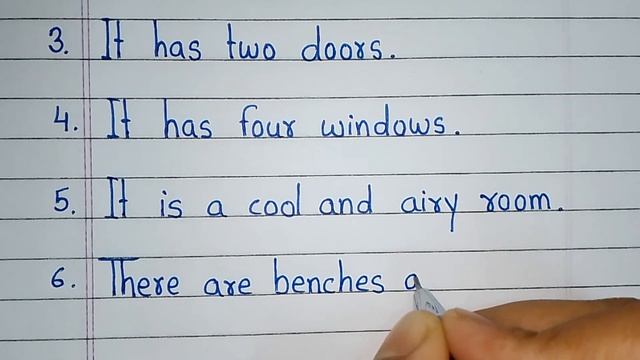 3. It has two doors.
4. It has four windows.
5. It is a cool and airy room.
6. There are benches a